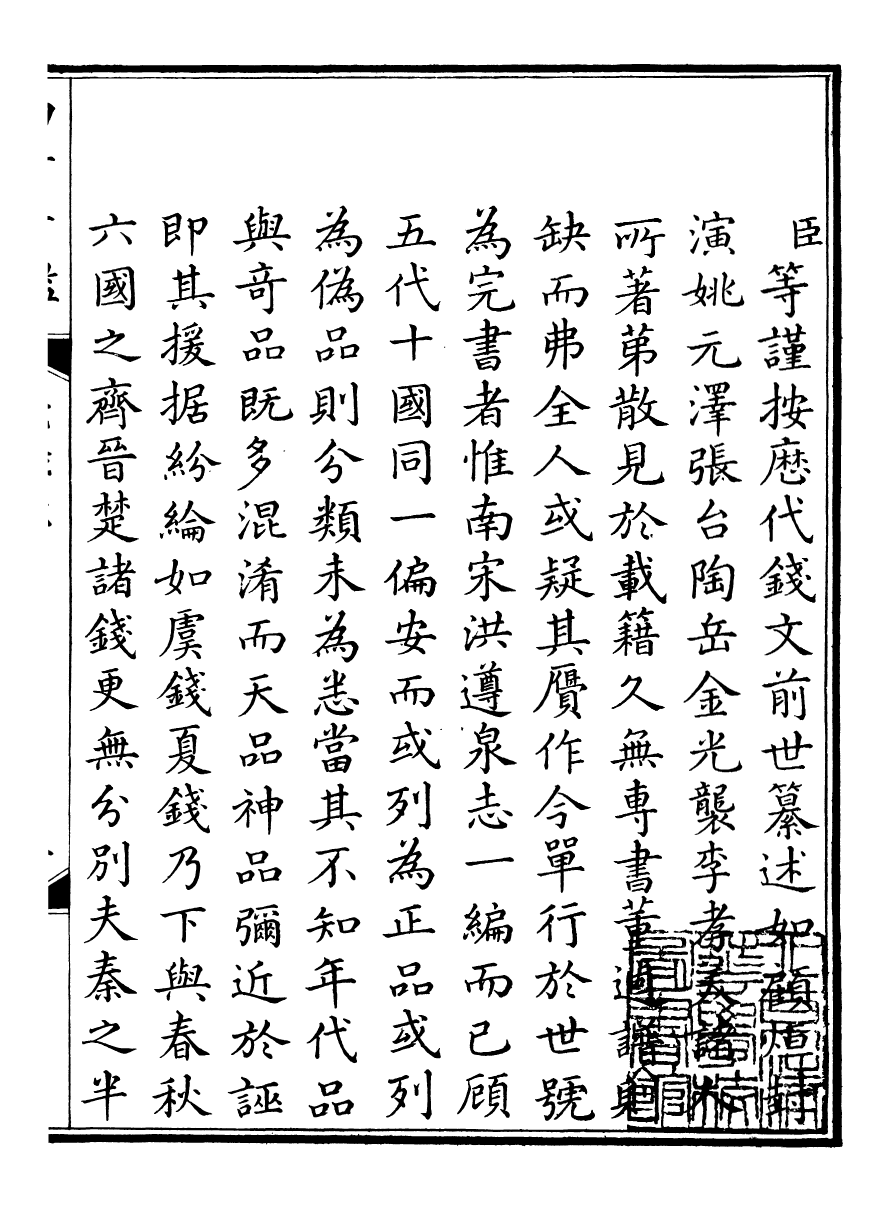 臣等謹按厯代錢文前世纂述如顧烜封
演姚元澤張台陶岳金光襲李孝美諸
所著第散見於載籍久無専書董逌譜
缺而弗全人或疑其贋作今單行於世號
為完書者惟南宋洪遵泉志一編而已顧
五代十國同一偏安而或列為正品或列
為偽品則分類未為悉當其不知年代品
與竒品既多混淆而天品神品彌近於誣
即其援据紛綸如虞錢夏錢乃下與春秋
六國之齊晉楚諸錢更無分別夫秦之半